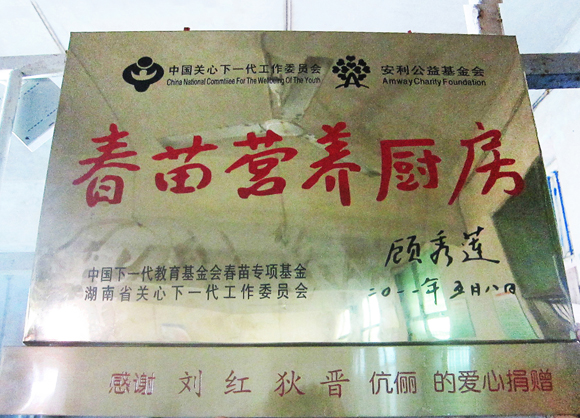 中国关心下一代工作委员会 安利公益基金会
China National Committee For The Wellbeing Of The Youth Amway Charity Foundation
春苗营养厨房
顾秀莲
中国下一代教育基金会春苗专项基金
湖南省关心下一代工作委员会
二〇一一年五月八日
感谢 刘红狄晋 伉俪 的爱心捐赠